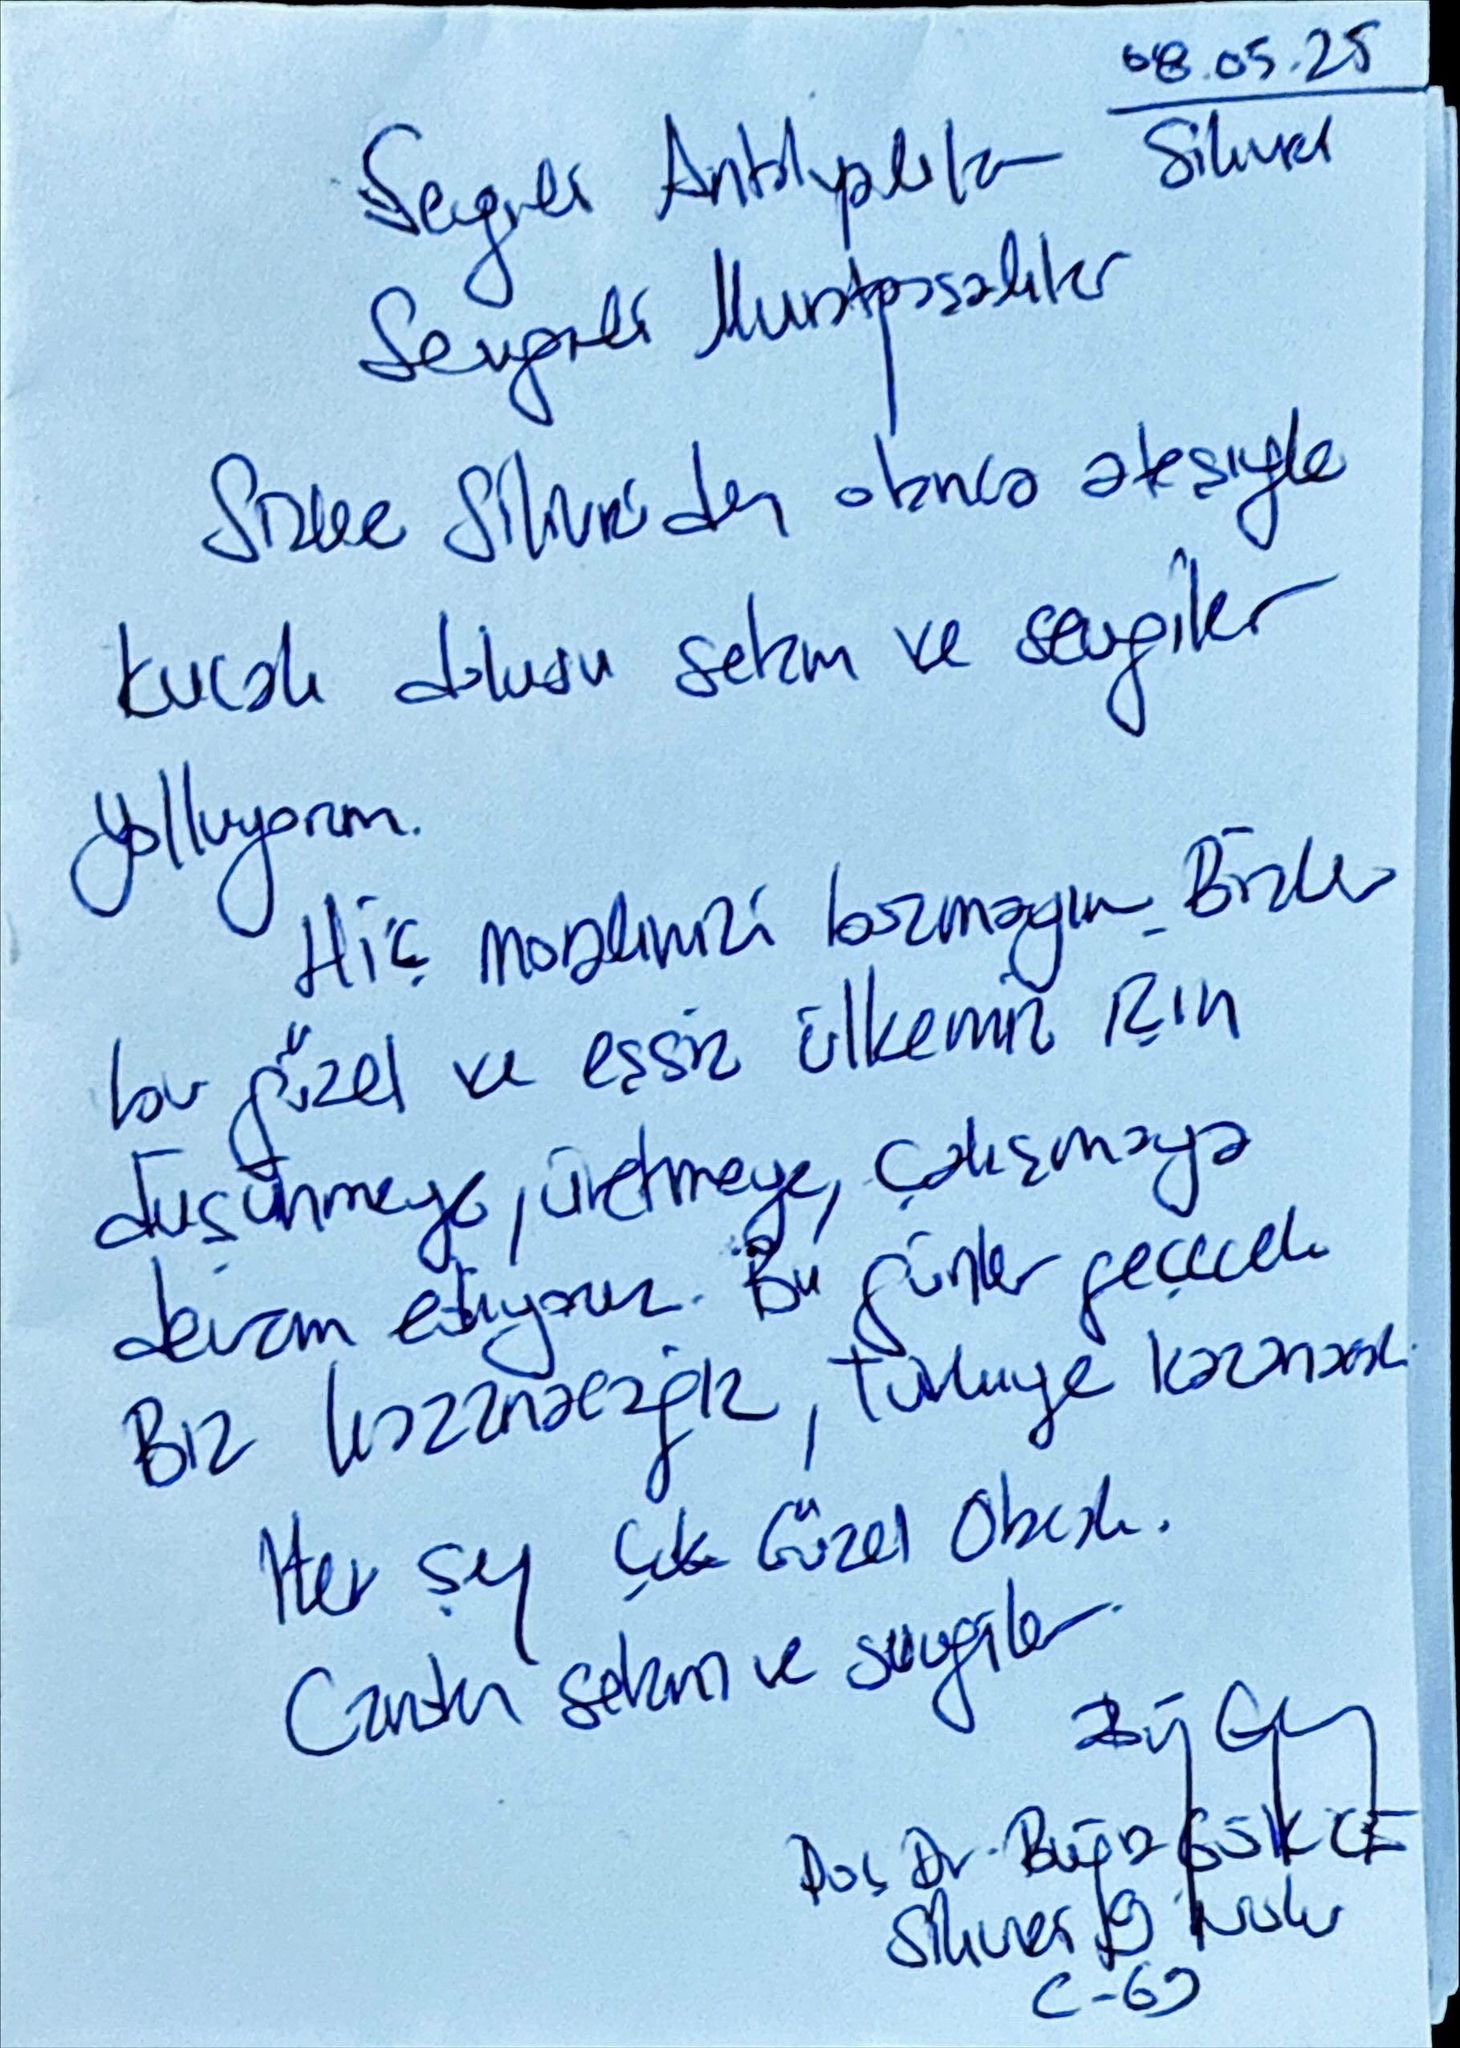 08.05.25
Silivri
Sevgili Antalyalılar
Sevgili Muratpaşalılar
Sizlere Silivri'den olanca ateşiyle
kucak dolusu selam ve sevgiler
yolluyorum.
Hiç moralinizi bozmayın. Bizler
bu güzel ve eşsiz ülkemiz için
düşünmeye, üretmeye, çalışmaya
devam ediyoruz. Bu günler geçecek
Biz kazanacağız, Türkiye kazanacak.
Her şey Çok Güzel Olacak.
Candan selam ve sevgiler.
Doç Dr. Buğra GÖKCE
Silivri 9 nolu
C-69